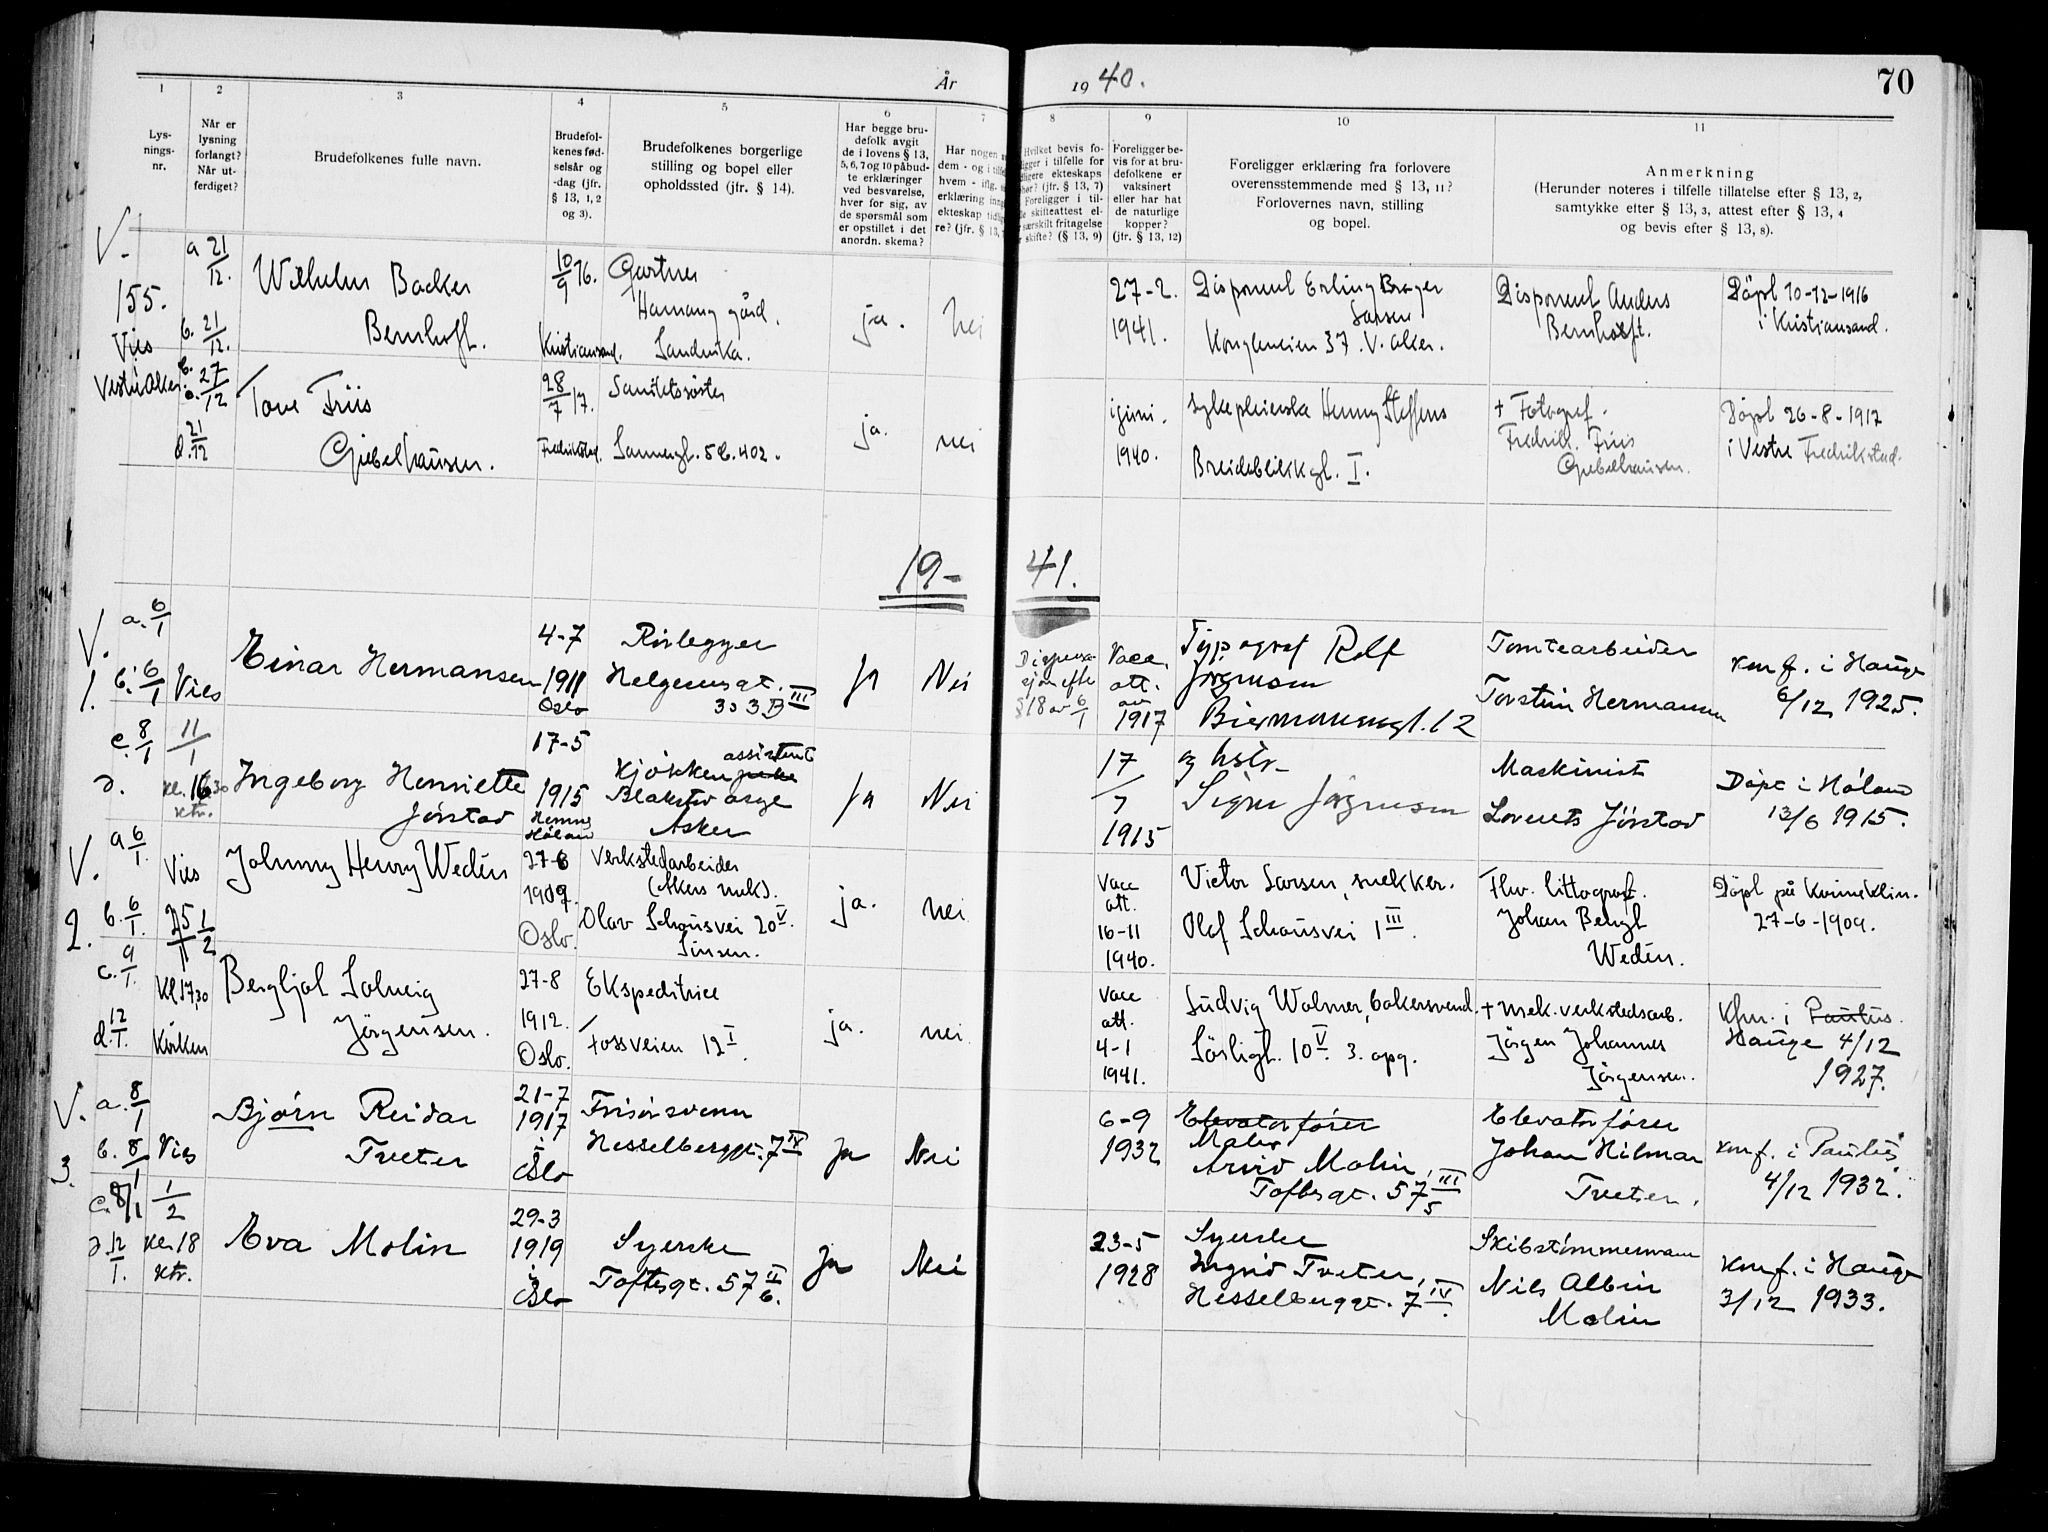 År 1940.
70
1 2 3 4 5 6 7 8 9 10 11
Lys-
nings-
nr.
Når er
lysning
forlangt?
Når ut-
ferdiget?
Brudefolkenes fulle navn.
Brudefol-
kenes fød-
selsår og
-dag (jfr.
§ 13, 1, 2
og 3).
Brudefolkenes borgerlige
stilling og bopel eller
opholdssted (jfr. § 14).
Har begge bru-
defolk avgit
de i lovens § 13,
5, 6, 7 og 10 påbud-
te erklæringer
ved besvarelse,
hver for sig, av
de spørsmål som
er opstillet i det
anordn. skema?
Har nogen a
dem - og i tilfe
hvem - iflg.
erklæring inng
ekteskap tidlig
re? (jfr. § 13,
Hvilket bevis fo-
ligger i tilfelle for
ligere ekteskaps
hør? (jfr. § 13, 7)
Foreligger i til-
le skifteattest el-
særskilt fritagelse
skifte? (§ 13, 9)
Foreligger be-
vis for at bru-
defolkene er
vaksinert
eller har hat
de naturlige
kopper?
(jfr. § 13, 12)
Foreligger erklæring fra forlovere
overensstemmende med § 13, 11?
Forlovernes navn, stilling
og bopel.
Anmerkning
(Herunder noteres i tilfelle tillatelse efter § 13, 2,
samtykke efter § 13, 3, attest efter § 13, 4
og bevis efter § 13, 8).
V.
155.
Vies
Vestre Aker.
a 21/12.
b. 21/12.
c. 27/12
d. 21/12
Wilhelm Backer
Bernhoft.
10/9 16.
Kristiansand.
Gartner
Hamang gård.
Sandvika.
ja.
nei
27-2.
1941.
Disponent Erling Brager
Larsen
Kongleveien 37. V. Aker.
Disponent Anders
Bernhoft.
Döpt 10-12-1916
i Kristiansand.
Tove Friis
Giebelhausen.
28/7 17.
Fredrikstad.
Sanitetssöster
Sannergt. 5b. 402.
ja.
nei
i juni.
1940.
Sykepleierske Henny Steffens
Breidablikkgt. I.
+ Fotograf.
Fredrik Friis
Giebelhausen.
Döpt 26-8-1917
i Vestre Fredrikstad.
19- 41.
V.
1.
a. 6/1
b. 6/1 Vies
c. 8/1 11/1
d. kl. 16.30
ktr.
Einar Hermansen
4-7
1911
Oslo
Rørlegger
Helgesensgt.
30 3 B III
Ja
Nei
§ 18 av 6/1
Vacc.
att.
av
1917
Typograf Rolf
Jørgensen
Biermannsgt. 12
Tomtearbeider
Torstein Hermansen
Konf. i Hauge
6/12 1925.
Ingeborg Henriette
Jørstad
17-5
1915
Hemnes
Høland
assistent
Kjøkken
Blakstad asyl
Asker
Ja
Nei
17
/
7
1915
og hstr.
Signe Jørgensen
Maskinist
Lorents Jørstad
Døpt i Høland
13/6 1915.
V.
2.
a 6/1.
b. 6/1.
c. 9/1.
d. 12/1.
Vies
25/1 1/2
Kl 17,30
Kirken
Johnny Henry Wedén
27-6
1909.
Oslo.
Verkstedarbeider
(Akers mek).
Olav Schousvei 20 V.
Sinsen.
ja.
nei
Vacc
att.
16-11
1940.
Victor Larsen, snekker.
Olof Schousvei 1 III.
Fhv. littograf.
Johan Bengt
Wedén.
Döpt på Kvinneklin.
27-6-1909.
Bergljot Solveig
Jörgensen.
27-8
1912.
Oslo.
Ekspeditrice
Fossveien 12 I.
ja.
nei
Vacc
att.
4-1
1941.
Ludvig Wolmer, bakersvend.
Sörligt. 10 V. 3. opg.
+ mek. verkstedsarb.
Jörgen Johannes
Jörgensen.
Kfm. i Paulus.
Hauge 4/12
1927.
V.
3.
a. 8/1
b. 8/1 Vies
c. 8/1 1/2
d 12/1. Kl. 18
Ktr.
Bjørn Reidar
Tveter
21-7
1917
i
Oslo
Frisørsvenn
Hesselberggt. 7 IV
Ja
Nei
6-9
1932
Elevatorfører
Maler
Arvid Molin,
Toftesgt. 57 III
5
Elevatorfører
Johan Hilmar
Tveter.
Konf. i Paulus
4/12 1932.
Eva Molin
29-3
1919
i
Oslo
Syerske
Toftesgt. 57 II
6.
Ja
Nei
23-5
1928
Syerske
Ingrid Tveter,
Hesselberggt. 7 IV.
Skibstømmermann
Nils Albin
Molin
Konf. i Hauge
3/12 1933.